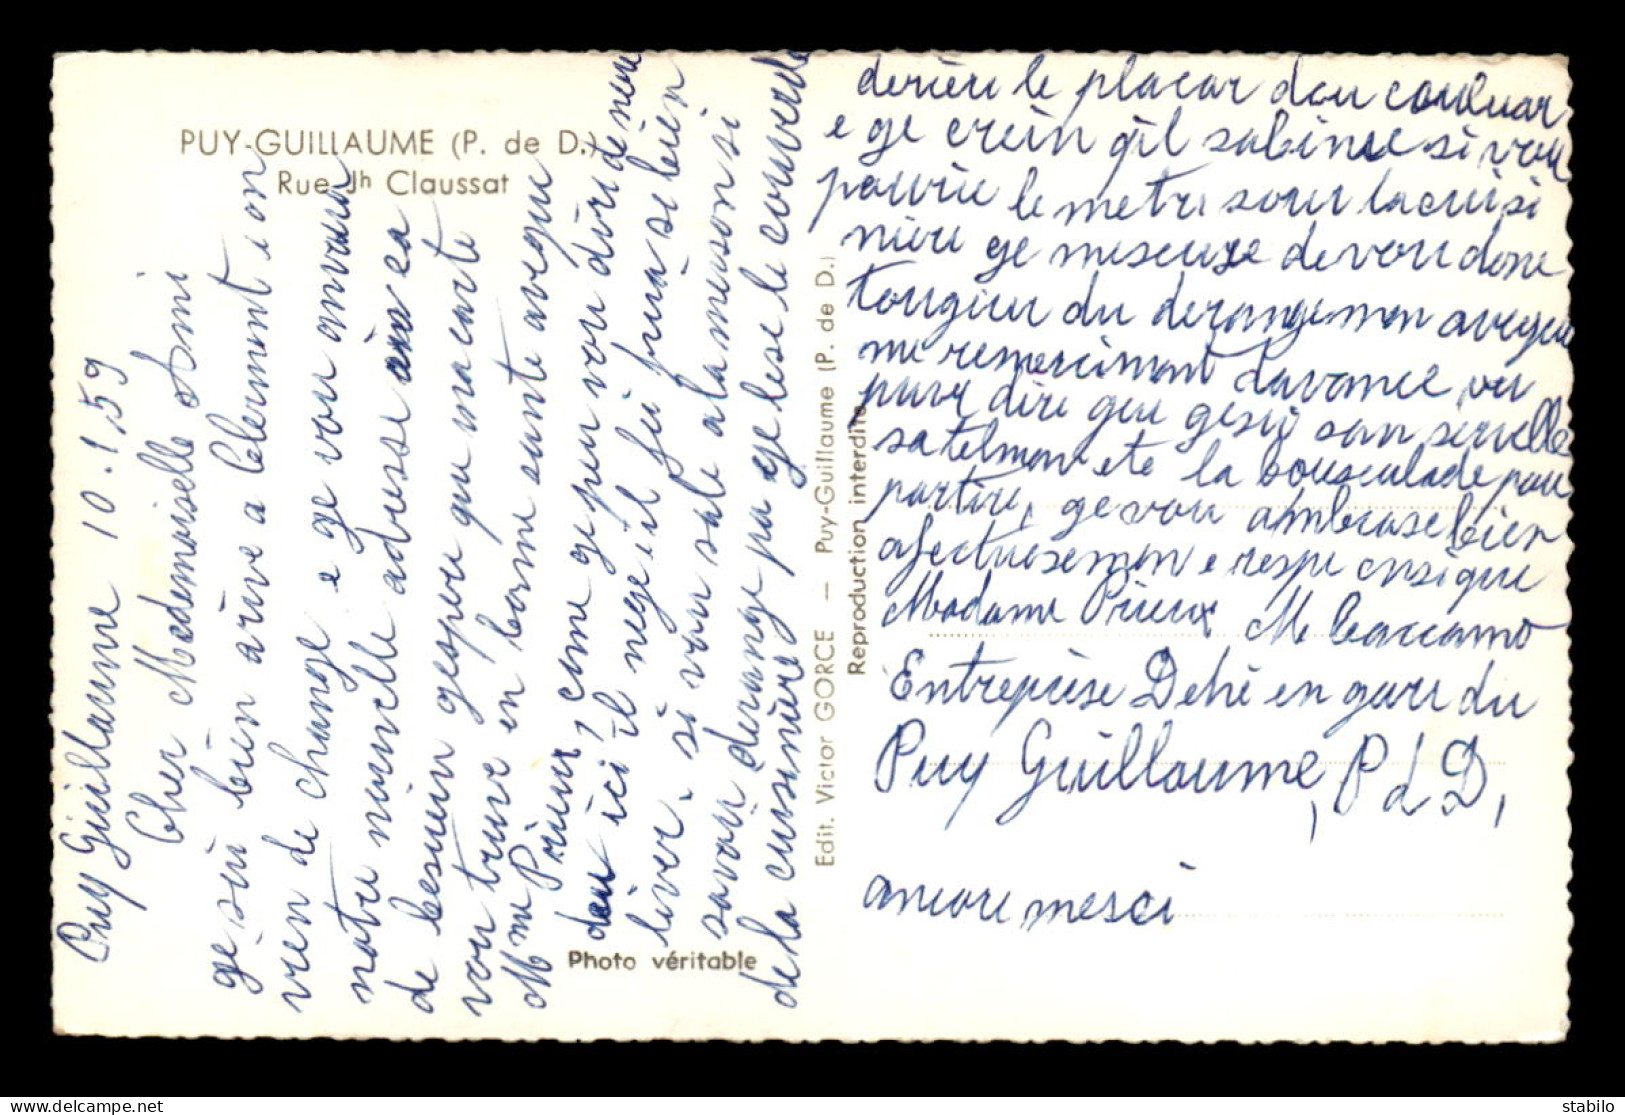 PUY-GUILLAUME (P. de D.)
Rue Jh Claussat
Puy Guillaume 10.1.59
Cher Mademoiselle Ami
ge suis bien arive a Clermont ion
rien de change e ge vou anvoua
notre nouvelle adresse
de besuin gespere que macarte
vou truve en bonne sante aveque
Mme Prieux, come gepeu vou dire de neu
ici il nege il fei froia se bien
liver, si vou sale a la meuson si
savoir derange pa ge lese le couvercle
de la cuisinière
Photo véritable
Edit. Victor GORCE — Puy-Guillaume (P. de D.)
Reproduction interdite
derieri le placar dou couluar
e ge crein qil sabime si vou
pouvrie le metre sour lacuisi
niere ge meseuse devou done
tougiour du derangemon aveque
me remerciment davance, vu
puve dire que gesui san servelle
satelmon ete la bousculade pour
partire, ge vou ambrase bien
afectuesemon e respe
Madame Prieux M Caccamo
Entrepise Dehé en gare du
Puy Guillaume, P d D,
ancore mesci
stabilo